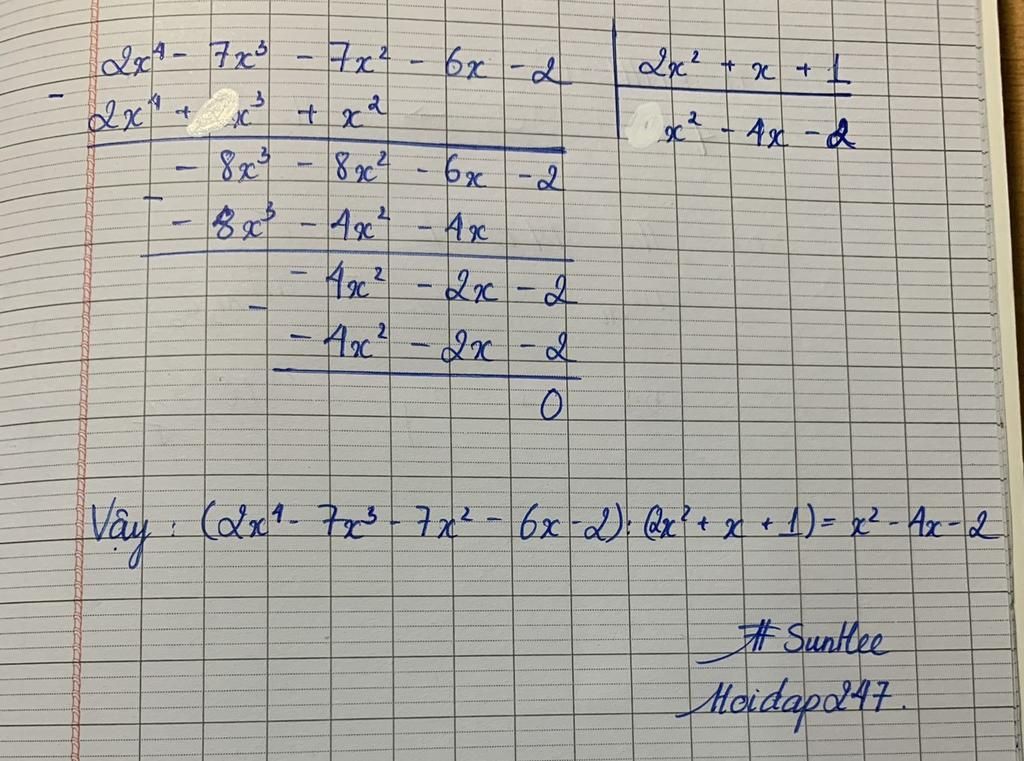 2x⁴ - 7x³ - 7x² - 6x - 2 | 2x² + x + 1
- 2x⁴ + x³ + x² | x² - 4x - 2
- 8x³ - 8x² - 6x - 2
- - 8x³ - 4x² - 4x
- 4x² - 2x - 2
- - 4x² - 2x - 2
0
Vậy : (2x⁴ - 7x³ - 7x² - 6x - 2) : (2x² + x + 1) = x² - 4x - 2
# SunHee
Hoidap247.